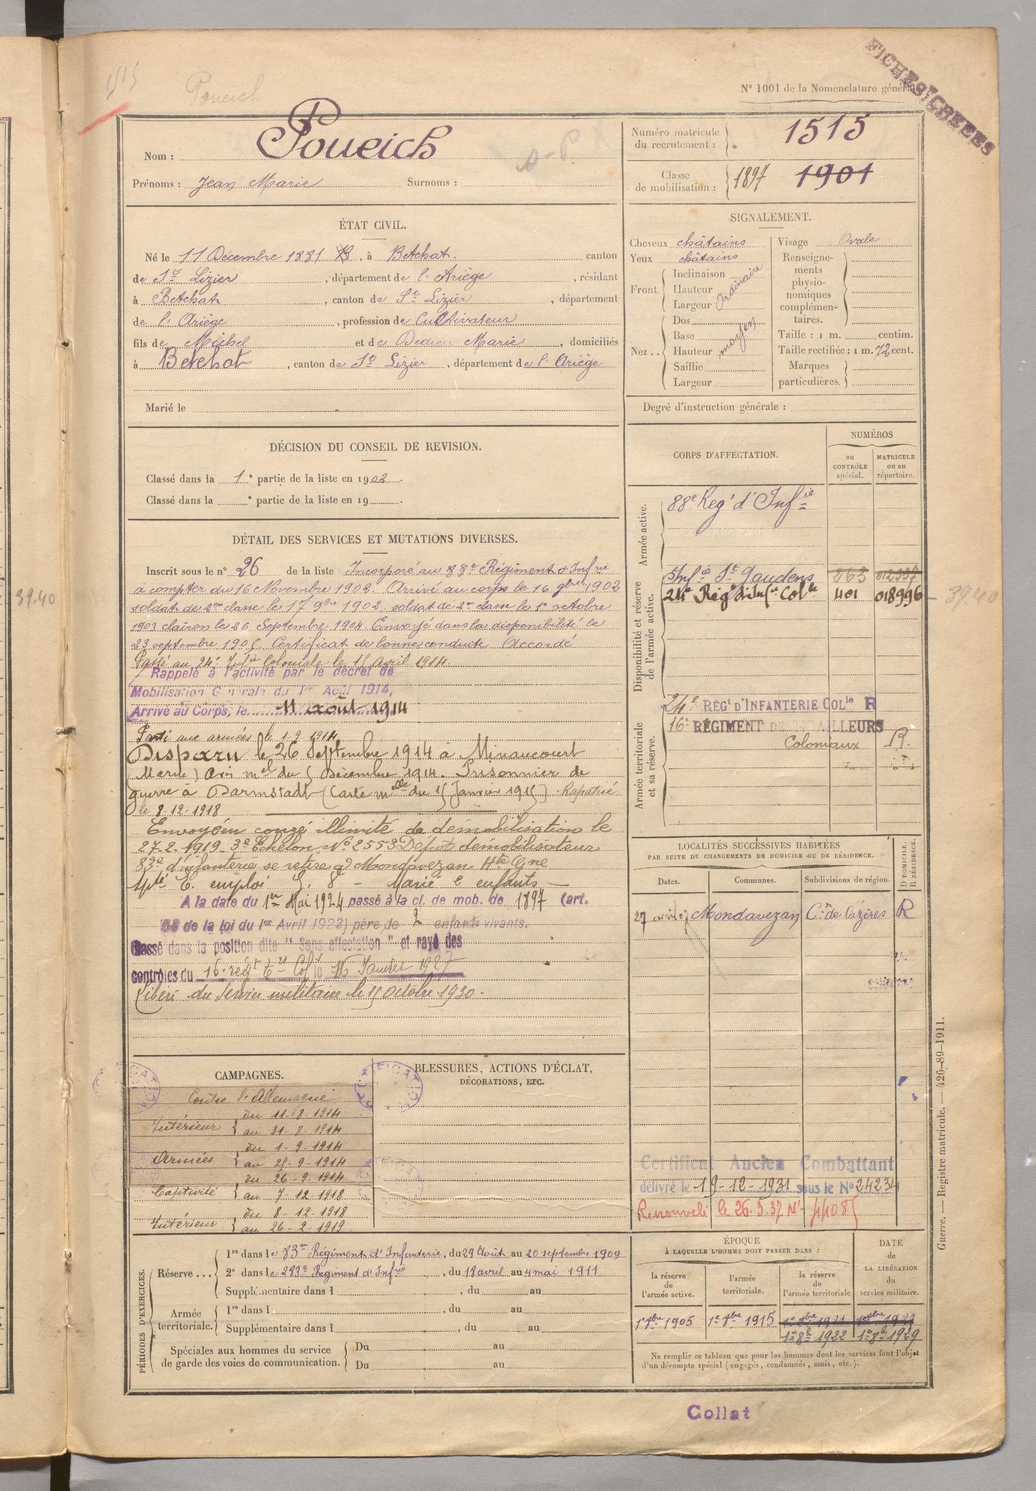 1515
Poueich
FICHES CREEES
N° 1001 de la Nomenclature génér
Nom : Poueich
Prénoms : Jean Marie Surnoms :
Numéro matricule du recrutement : 1515
Classe de mobilisation : 1897 1901
ÉTAT CIVIL.
Né le 11 Décembre 1881 , à Betchat. canton
de St Lizier , département de l'Ariège , résidant
à Betchat , canton de St Lizier , département
de l'Ariège , profession de Cultivateur
fils de Michel et de Marie , domiciliés
à Betchat , canton de St Lizier , département de l'Ariège
Marié le
SIGNALEMENT.
Cheveux châtains
Yeux châtains
Front. Inclinaison Hauteur Largeur Ordinaire
Nez .. Dos Base Hauteur Saillie Largeur moyen
Visage Ovale
Renseignements physionomiques complémentaires.
Taille : 1 m. centim.
Taille rectifiée : 1 m. 72 cent.
Marques particulières.
Degré d'instruction générale :
DÉCISION DU CONSEIL DE REVISION.
Classé dans la 1e partie de la liste en 1902.
Classé dans la e partie de la liste en 19
DÉTAIL DES SERVICES ET MUTATIONS DIVERSES.
Inscrit sous le n° 26 de la liste Incorporé au 88e Régiment d'Infrie
à compter du 16 Novembre 1902. Arrivé au corps le 16 9bre 1902
soldat de 2me classe le 17 9bre 1902. soldat de 1re classe le 1er octobre
1903 clairon le 26 Septembre 1904. Envoyé dans la disponibilité le
23 septembre 1905. Certificat de bonne conduite Accordé
Passé au 24e Infie Coloniale le 15 avril 1914.
Rappelé à l'activité par le décret de
Mobilisation Générale du 1er Août 1914,
Arrivé au Corps, le 11 août 1914
Parti aux armées le 1.9.1914
Disparu le 26 Septembre 1914 à Minaucourt
(Marne) Avis mel du 5 Décembre 1914. Prisonnier de
guerre à Darmstadt (Carte mdlle du 15 Janvier 1915) Rapatrié
le 8.12.1918
Envoyé en congé illimité de démobilisation le
27.2.1919 3e Echelon N° 2553 Dépôt démobilisateur
83e d'infanterie se retire à Mondavezan Hte Gne
emploi 8 - Marié 2 enfants
A la date du 1er Mai 1924 passé à la cl. de mob. de 1897 (art.
58 de la loi du 1er Avril 1923) père de 2 enfants vivants.
Classé dans la position dite "Sans affectation" et rayé des
contrôles du 16e régt Col le 16 1927
Libéré du service militaire le 15 Octobre 1930.
CORPS D'AFFECTATION.
NUMÉROS
au CONTRÔLE spécial.
MATRICULE ou au répertoire.
Armée active.
88e Regt d'Infie
Disponibilité et réserve de l'armée active.
Infie St Gaudens 563 012337
24e Regt d'Infie Cole 401 018996 - 39.40
39.40
Armée territoriale et sa réserve.
24e RÉGt D'INFANTERIE COLle R
16e RÉGIMENT DE TIRAILLEURS
Coloniaux R.
LOCALITÉS SUCCESSIVES HABITÉES
PAR SUITE DE CHANGEMENTS DE DOMICILE OU DE RÉSIDENCE.
Dates. Communes. Subdivisions de région. D DOMICILE. R RÉSIDENCE.
Mondavezan Con de Cazères R
CAMPAGNES.
Contre l'Allemagne
Intérieur du 11.8.1914 au 31.8.1914
Armées du 1.9.1914 au 25.9.1914
Captivité du 26.9.1914 au 7.12.1918
Intérieur du 8.12.1918 au 26.2.1919
BLESSURES, ACTIONS D'ÉCLAT,
DÉCORATIONS, ETC.
Certificat Ancien Combattant
délivré le 19-12-1931 sous le N° 24234
Renouvelé le 26.5.37 N°
PÉRIODES D'EXERCICES.
Réserve ... 1re dans le 83e Régiment d'Infanterie, du 29 Août au 20 septembre 1909
2e dans le 283e Régiment d'Infrie , du 18 avril au 4 mai 1911
Supplémentaire dans l , du au
Armée territoriale. 1re dans l , du au
Supplémentaire dans l , du au
Spéciales aux hommes du service de garde des voies de communication. Du au
Du au
ÉPOQUE
À LAQUELLE L'HOMME DOIT PASSER DANS :
la réserve de l'armée active.
l'armée territoriale.
la réserve de l'armée territoriale
DATE DE LA LIBÉRATION du service militaire.
1er 8bre 1905 1er 8bre 1915 1er 8bre 1922 1er 8bre 1929
Ne remplir ce tableau que pour les hommes dont les services font l'objet
d'un décompte spécial (engagés, condamnés, omis, etc.).
Guerre. — Registre matricule. — 426-89-1911.
Collat